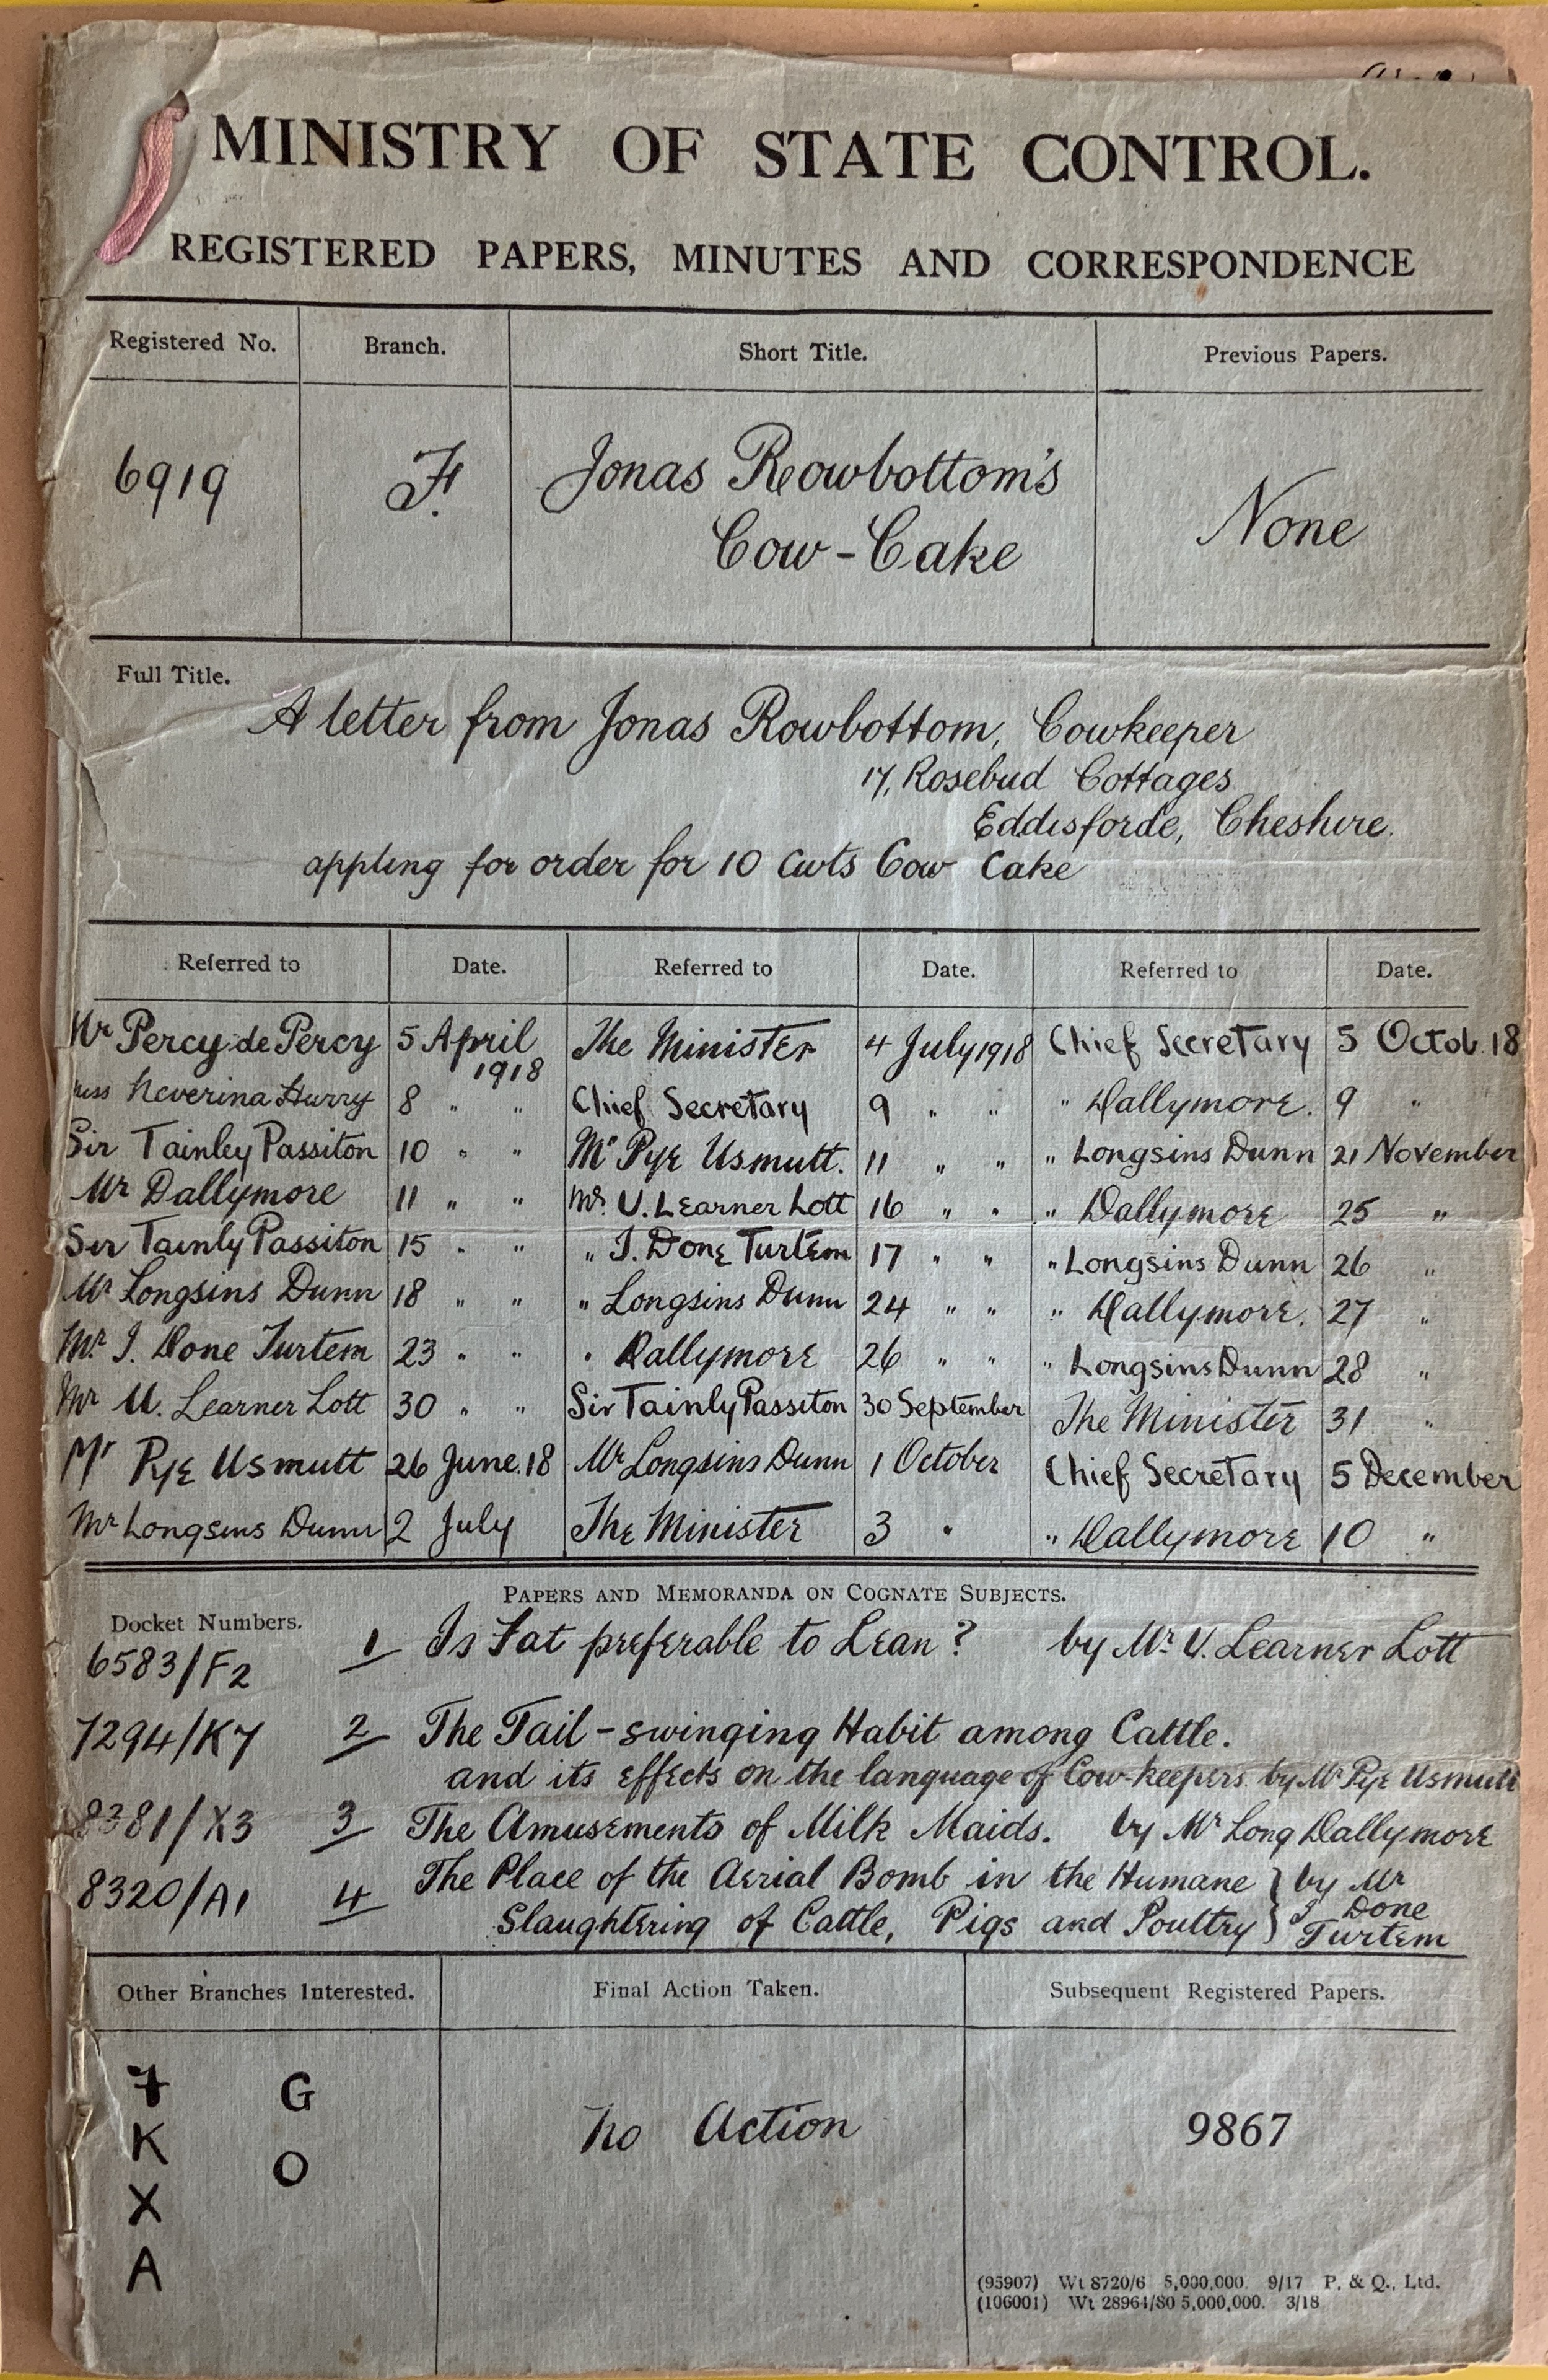 MINISTRY OF STATE CONTROL.
REGISTERED PAPERS, MINUTES AND CORRESPONDENCE
Registered No. Branch. Short Title. Previous Papers.
6919 F. Jonas Rowbottom's Cow-Cake None
Full Title.
A letter from Jonas Rowbottom, Cowkeeper
17, Rosebud Cottages
Eddisforde, Cheshire.
appling for order for 10 Cwts Cow Cake
Referred to Date. Referred to Date. Referred to Date.
Mr Percy de Percy 5 April 1918 The Minister 4 July 1918 Chief Secretary 5 Octob. 18
Miss Neverina Hurry 8 " " Chief Secretary 9 " " " Dallymore. 9 "
Sir Tainley Passiton 10 " " Mr Pye Usmutt. 11 " " " Longsins Dunn 21 November
Mr Dallymore 11 " " Mr. U. Learner Lott 16 " " " Dallymore 25 "
Sir Tainly Passiton 15 " " " I. Done Turtem 17 " " " Longsins Dunn 26 "
Mr Longsins Dunn 18 " " " Longsins Dunn 24 " " " Dallymore. 27 "
Mr. I. Done Turtem 23 " " " Dallymore 26 " " " Longsins Dunn 28 "
Mr U. Learner Lott 30 " " Sir Tainly Passiton 30 September The Minister 31 "
Mr Pye Usmutt 26 June. 18 Mr Longsins Dunn 1 October Chief Secretary 5 December
Mr Longsins Dunn 2 July The Minister 3 " " Dallymore 10 "
PAPERS AND MEMORANDA ON COGNATE SUBJECTS.
Docket Numbers.
6583/F2 1 Is Fat preferable to Lean? by Mr U. Learner Lott
7294/K7 2 The Tail-swinging Habit among Cattle.
and its effects on the language of Cow-keepers. by Mr Pye Usmutt
8381/X3 3 The Amusements of Milk Maids. by Mr Long Dallymore
8320/A1 4 The Place of the Aerial Bomb in the Humane } by Mr
Slaughtering of Cattle, Pigs and Poultry } I Done Turtem
Other Branches Interested. Final Action Taken. Subsequent Registered Papers.
7 G
K O
X
A
No Action
9867
(95907) Wt 8720/6 5,000,000. 9/17 P. & Q., Ltd.
(106001) Wt 28964/80 5,000,000. 3/18